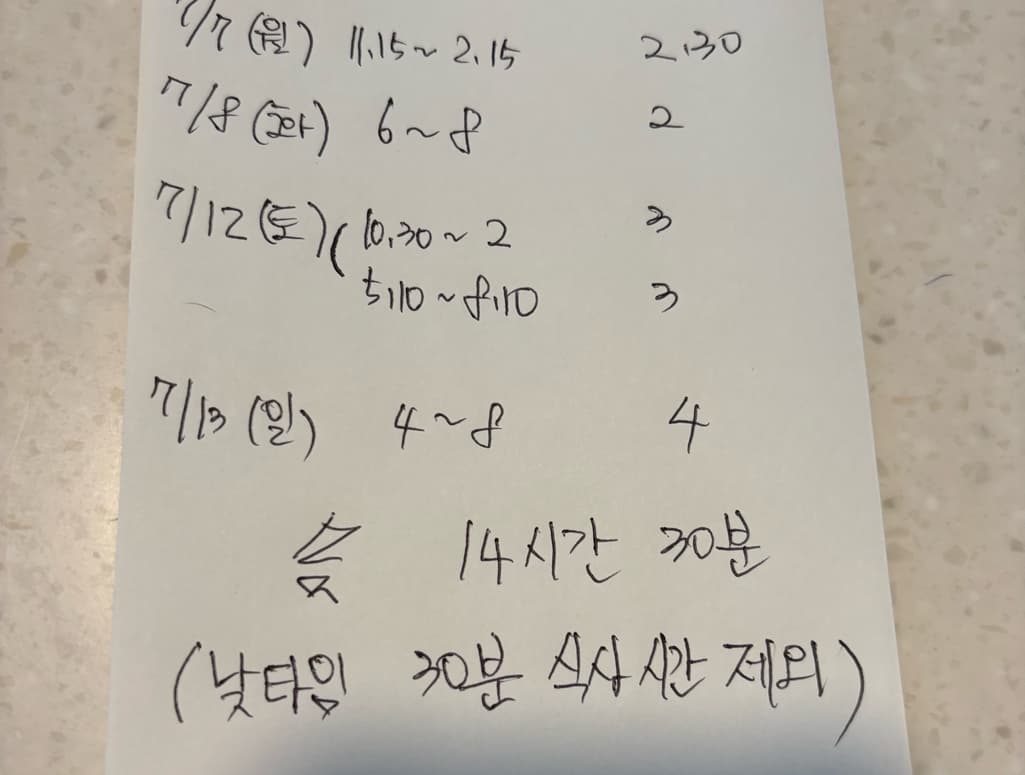 7/7 (월) 11.15~2.15 2.30
7/8 (화) 6~8 2
7/12 (토) ( 10.30~2 3
5.10~8.10 3
7/13 (일) 4~8 4
총 14시간 30분
(낮타임 30분 식사시간 제외)